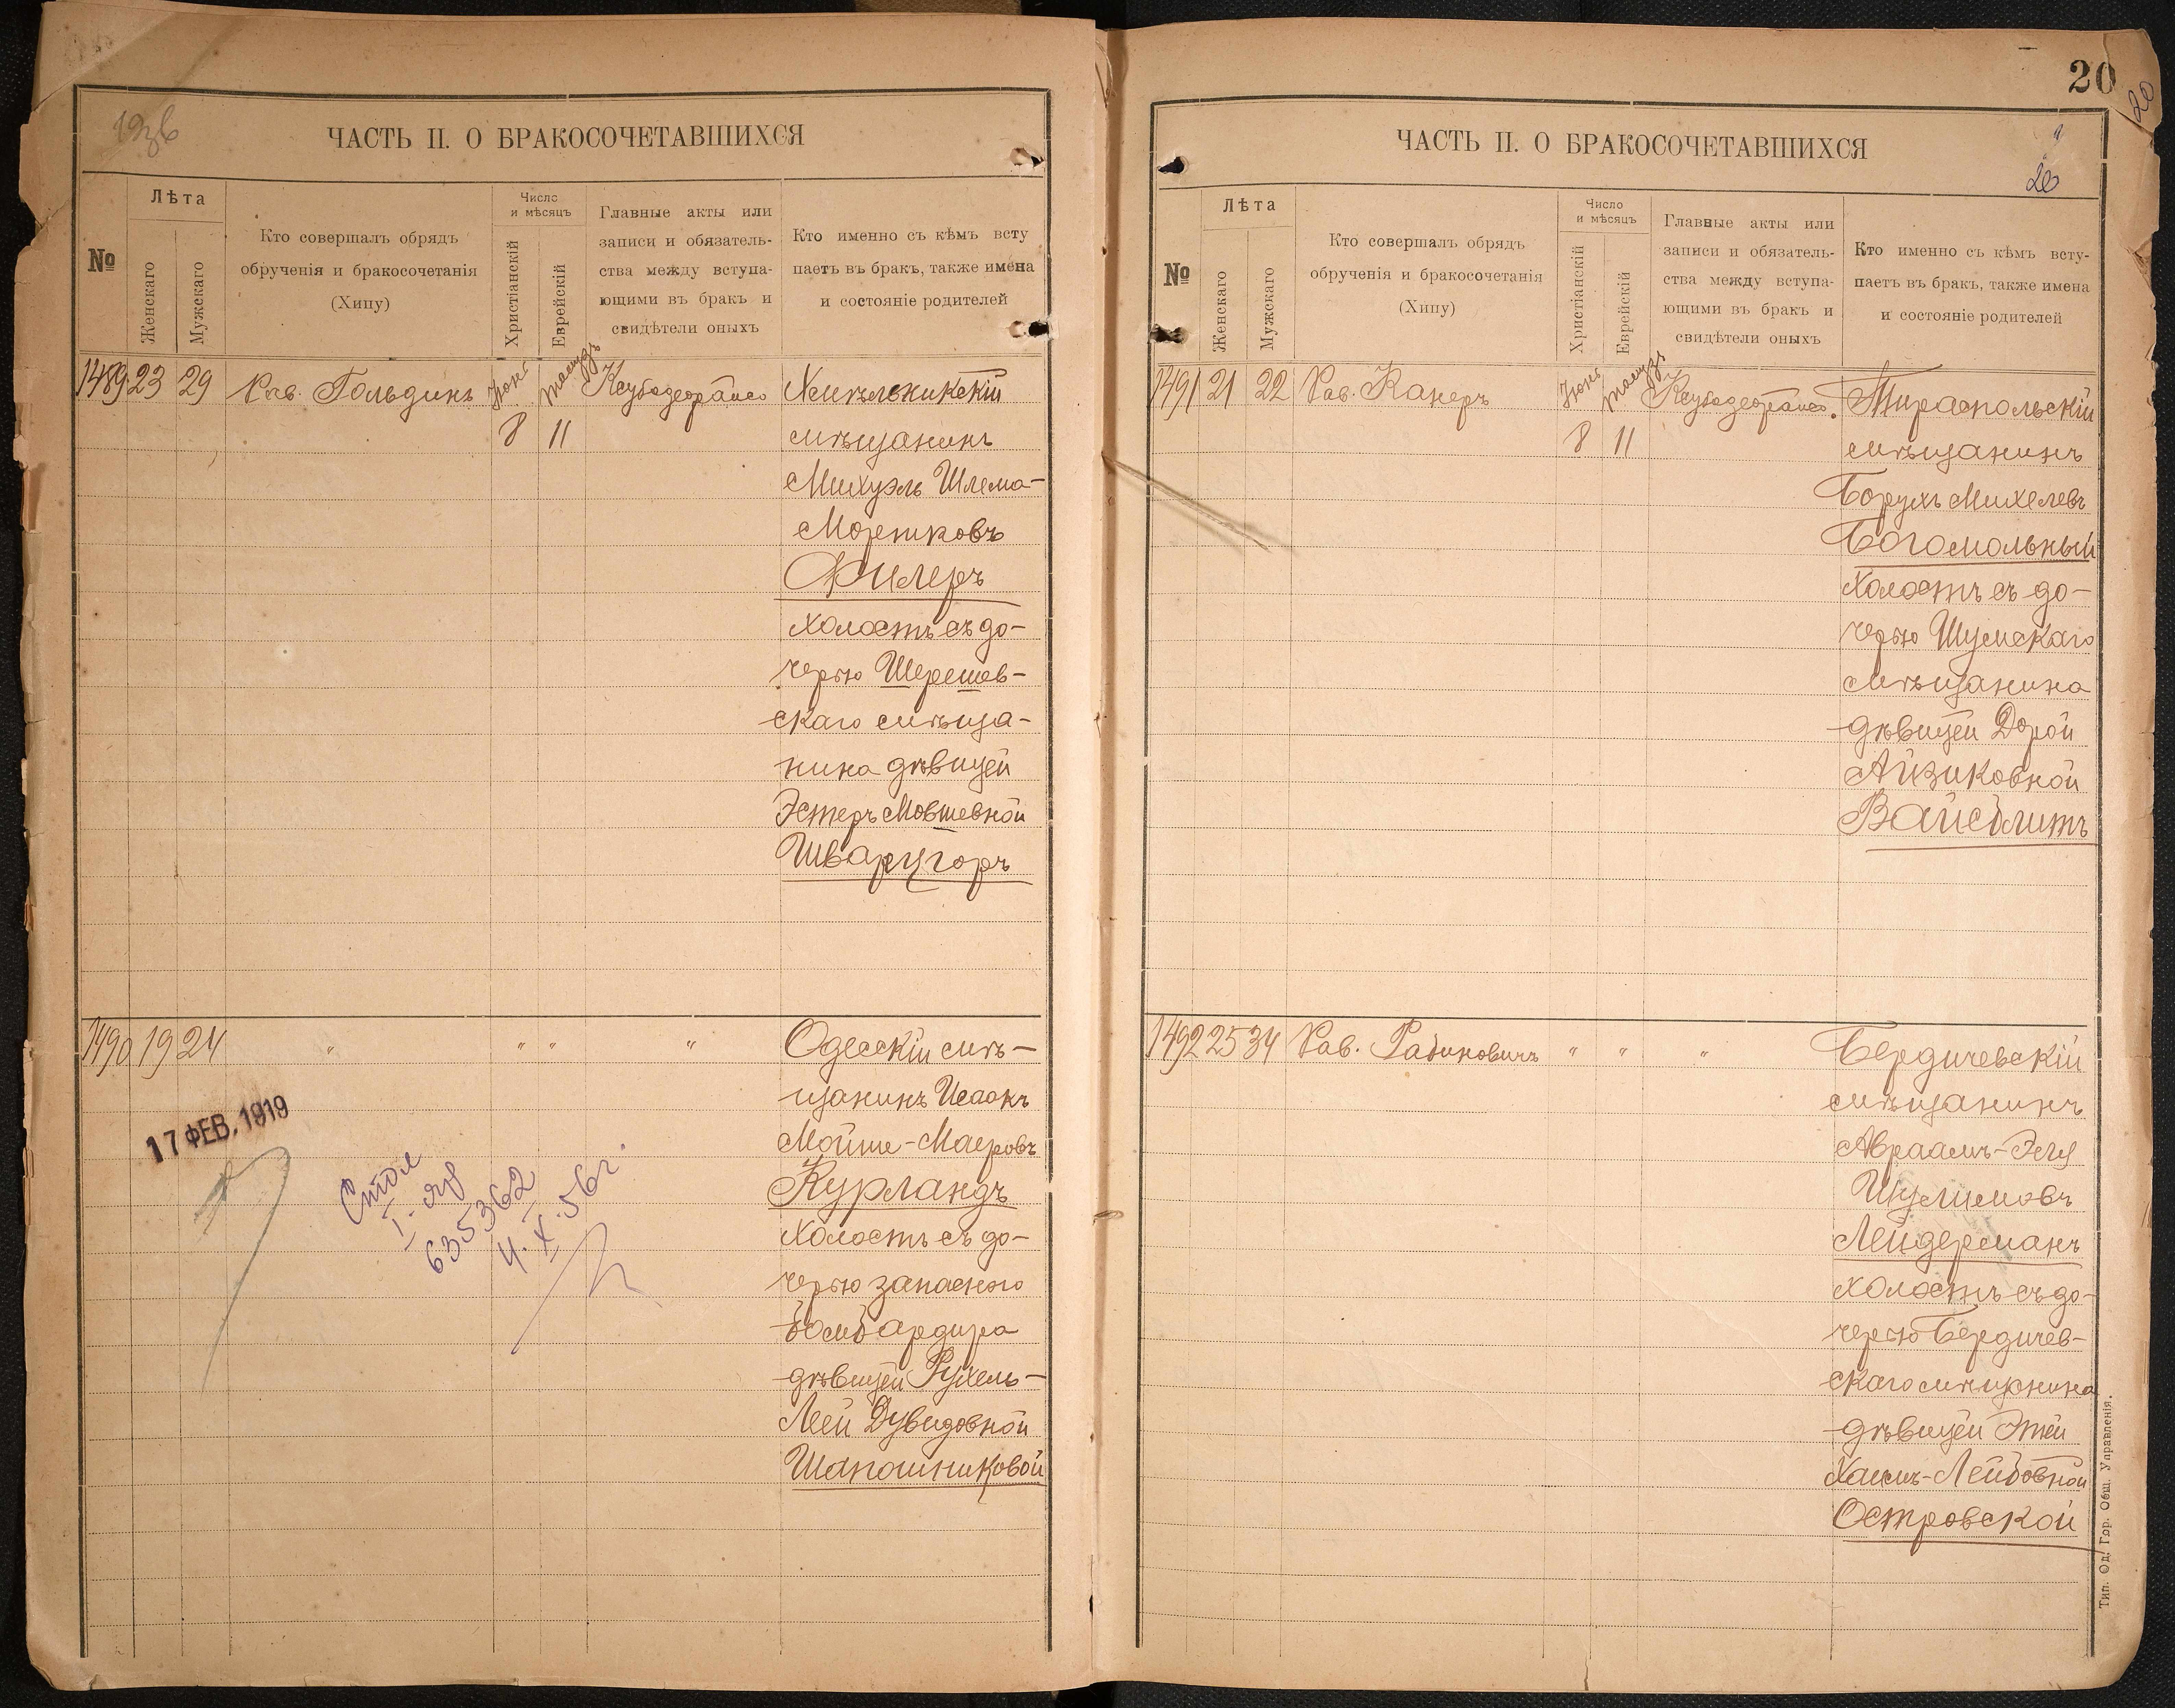 19об
ЧАСТЬ II. О БРАКОСОЧЕТАВШИХСЯ
№
Лѣта
Женскаго
Мужскаго
Кто совершалъ обрядъ
обрученія и бракосочетанія
(Хипу)
Число
и мѣсяцъ
Христіанскій
Еврейскій
Главные акты или
записи и обязатель-
ства между вступа-
ющими въ бракъ и
свидѣтели оныхъ
Кто именно съ кѣмъ всту
паетъ въ бракъ, также имена
и состояніе родителей
1489 23 29 Рав. Гольдинъ Іюнь Тамузъ
8 11
Хмѣльникскій
мѣщанинъ
Михуэль Шлема-
Мортковъ
Филеръ
холостъ съ до-
черью Шерешев-
скаго мѣща-
нина дѣвицей
Эстеръ Мовшевной
Шварцгоръ
1490 19 24 " " " "
Одесскій мѣ-
щанинъ Исаакъ
Мойше-Маеровъ
Курландъ
холостъ съ до-
черью запасного
бомбардира
дѣвицей Рухель-
Леей Дувидовной
Шапошниковой
17 ФЕВ. 1919
635362
4.X.56г.
20
20
ЧАСТЬ II. О БРАКОСОЧЕТАВШИХСЯ
20
№
Лѣта
Женскаго
Мужскаго
Кто совершалъ обрядъ
обрученія и бракосочетанія
(Хипу)
Число
и мѣсяцъ
Христіанскій
Еврейскій
Главные акты или
записи и обязатель-
ства между вступа-
ющими въ бракъ и
свидѣтели оныхъ
Кто именно съ кѣмъ всту-
паетъ въ бракъ, также имена
и состояніе родителей
1491 21 22 Рав. Канеръ Іюнь Тамузъ
8 11
Тираспольскій
мѣщанинъ
Борухъ Михелевъ
Богомольный
холостъ съ до-
черью Шумскаго
мѣщанина
дѣвицей Дорой
Айзиковной
Вайсблитъ
1492 25 34 Рав. Рабиновичъ " " "
Бердичевскій
мѣщанинъ
Авраамъ-Эля
Шулимовъ
Лейдерманъ
холостъ съ до-
черью Бердичев-
скаго мѣщанина
дѣвицей Этей
Хаимъ-Лейбовной
Островской
Тип. Од. Гор. Общ. Управленія.